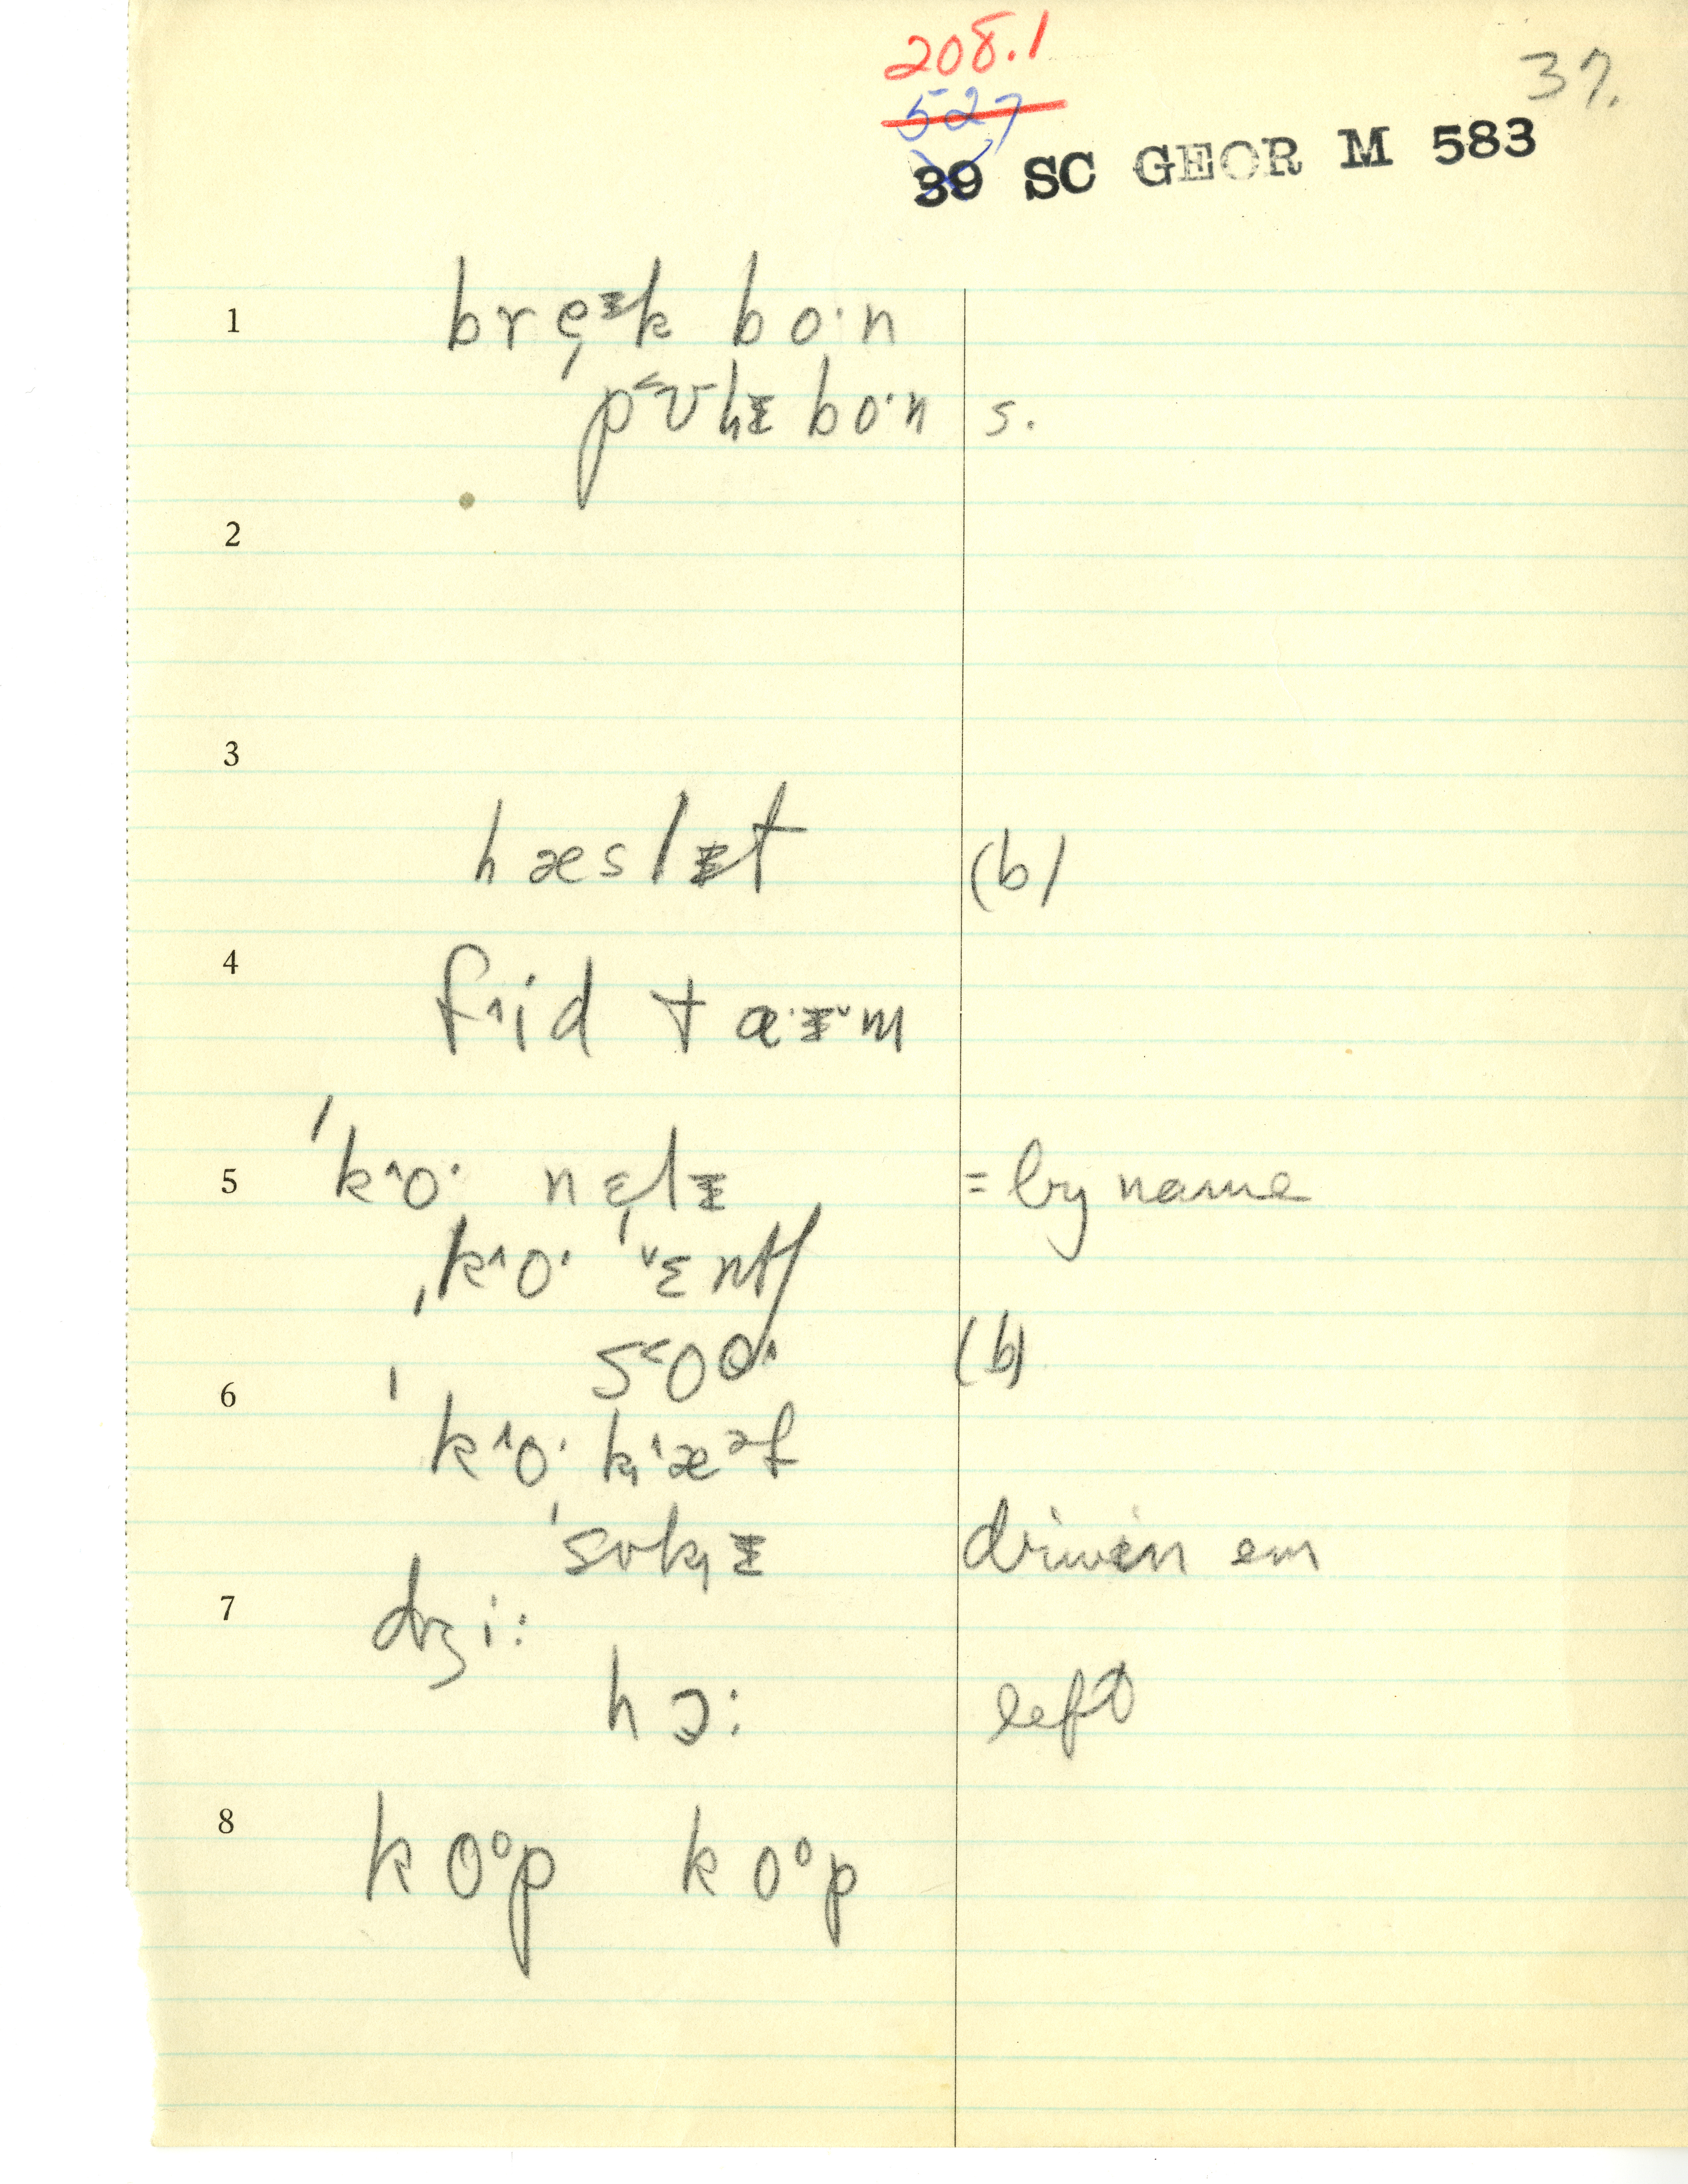 208.1
37.
527
39 SC GEOR M 583
1 brę ᵻk bo·n
p˂ʊlᵻ bo·n s.
2
3
hæslᵻt (b)
4
f^id ta·ᵻ˅m
5 ˈk^o· nɛ̨lᵻ = by name
ˌk^o· ˅ɛntʃ
s˂oə^ (b)
6
ˈk^o· k̟^æᵊf
ˈsʊk̟ᵻ drivin em
7 dʒi:
hɔ: left
8 koºp koºp